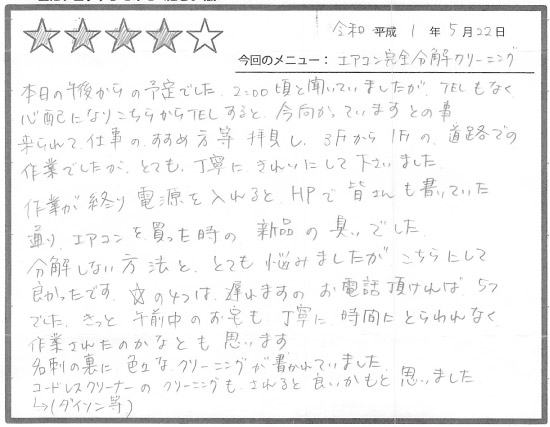 令和 平成 1 年 5 月 22 日
今回のメニュー： エアコン完全分解クリーニング
本日の午後からの予定でした。2:00頃と聞いていましたが、TELもなく
心配になりこちらからTELすると、今向かっていますとの事
来られて、仕事のすすめ方等 拝見し、3Fから1Fの、道路での
作業でしたが、とても、丁寧に、きれいにして下さいました。
作業が終り 電源を入れると、HPで皆さんも書いていた
通り、エアコンを買った時の 新品の臭いでした。
分解しない方法と、とても悩みましたが こちらにして
良かったです。☆の4つは、遅れますの お電話頂ければ 5つ
でした。きっと 午前中のお宅も 丁寧に 時間にとらわれなく
作業されたのかなとも 思います
名刺の裏に 色々な クリーニングが書かれていました。
コードレスクリーナーの クリーニングも、されると 良いかもと 思いました
↳(ダイソン等)